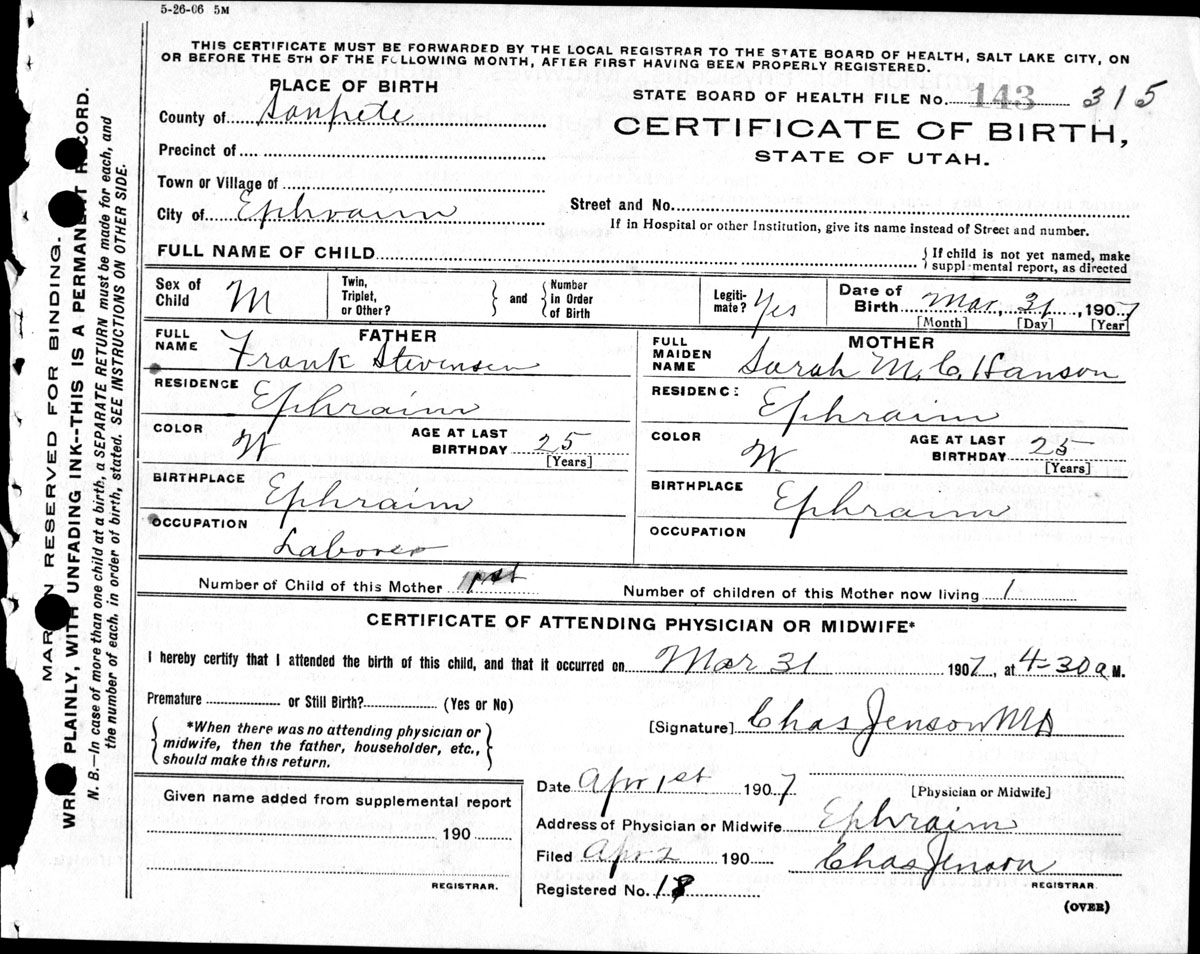 5-26-06 5M
THIS CERTIFICATE MUST BE FORWARDED BY THE LOCAL REGISTRAR TO THE STATE BOARD OF HEALTH, SALT LAKE CITY, ON
OR BEFORE THE 5TH OF THE FOLLOWING MONTH, AFTER FIRST HAVING BEEN PROPERLY REGISTERED.
PLACE OF BIRTH
STATE BOARD OF HEALTH FILE No. 143 315
County of Sanpete
CERTIFICATE OF BIRTH,
Precinct of
STATE OF UTAH.
Town or Village of
City of Ephraim
Street and No.
If in Hospital or other Institution, give its name instead of Street and number.
FULL NAME OF CHILD
If child is not yet named, make
supplemental report, as directed
Sex of Child M
Twin, Triplet, or Other?
and
Number in Order of Birth
Legiti-mate? Yes
Date of Birth Mar, 31, 1907
[Month] [Day] [Year]
FATHER
FULL NAME Frank Stevensen
RESIDENCE Ephraim
COLOR W
AGE AT LAST BIRTHDAY 25
[Years]
BIRTHPLACE Ephraim
OCCUPATION Laborer
MOTHER
FULL MAIDEN NAME Sarah M. C. Hanson
RESIDENCE Ephraim
COLOR W.
AGE AT LAST BIRTHDAY 25
[Years]
BIRTHPLACE Ephraim
OCCUPATION
Number of Child of this Mother 1st
Number of children of this Mother now living 1
CERTIFICATE OF ATTENDING PHYSICIAN OR MIDWIFE*
I hereby certify that I attended the birth of this child, and that it occurred on Mar 31 1907, at 4-30 a M.
Premature or Still Birth? (Yes or No)
*When there was no attending physician or
midwife, then the father, householder, etc.,
should make this return.
[Signature] Chas Jenson MD
[Physician or Midwife]
Given name added from supplemental report
190
REGISTRAR.
Date Apr 1st 1907
Address of Physician or Midwife Ephraim
Filed Apr 2 190
Chas Jenson
REGISTRAR
Registered No. 18
(OVER)
MARGIN RESERVED FOR BINDING.
WRITE PLAINLY, WITH UNFADING INK--THIS IS A PERMANENT RECORD.
N. B.—In case of more than one child at a birth, a SEPARATE RETURN must be made for each, and
the number of each, in order of birth, stated. SEE INSTRUCTIONS ON OTHER SIDE.